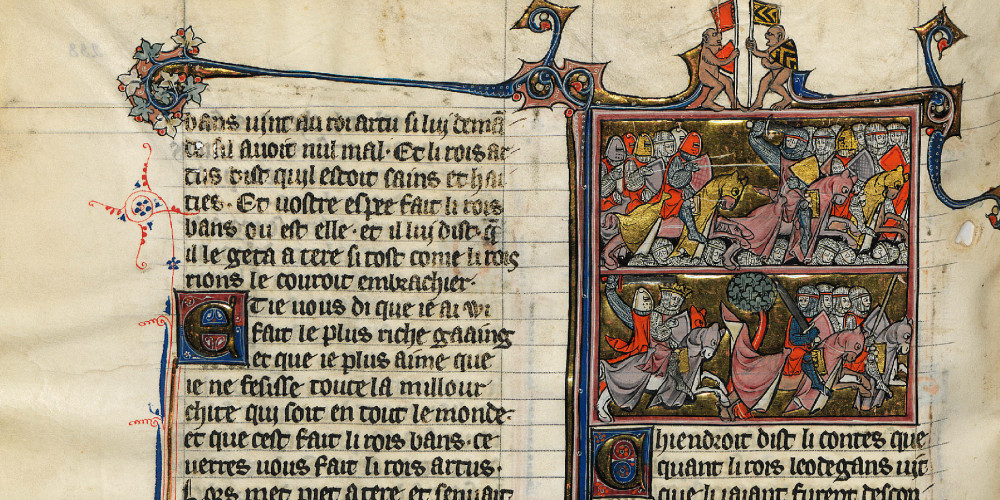 bans uint au roi artu si lui demā
da sil auoit nul mal· Et li rois ar
tus dist quil estoit sains et hai
ties· Et uostre espee fait li rois
bans ou est elle· et il lui dist· q̄
il le geta a tere si tost come li rois
rions le courut embrachier·
Et ie uous di que ie ai wi
fait le plus riche gaaing
et que ie plus aime que
ie ne fesisse toute la millour
chite qui soit en tout le monde·
et que cest fait li rois bans· ce
uerres uous fait li rois artus·
Lors met piet a tere et
Chi endroit dist li contes que
quant li rois leodegans uit
que li iaiant furent